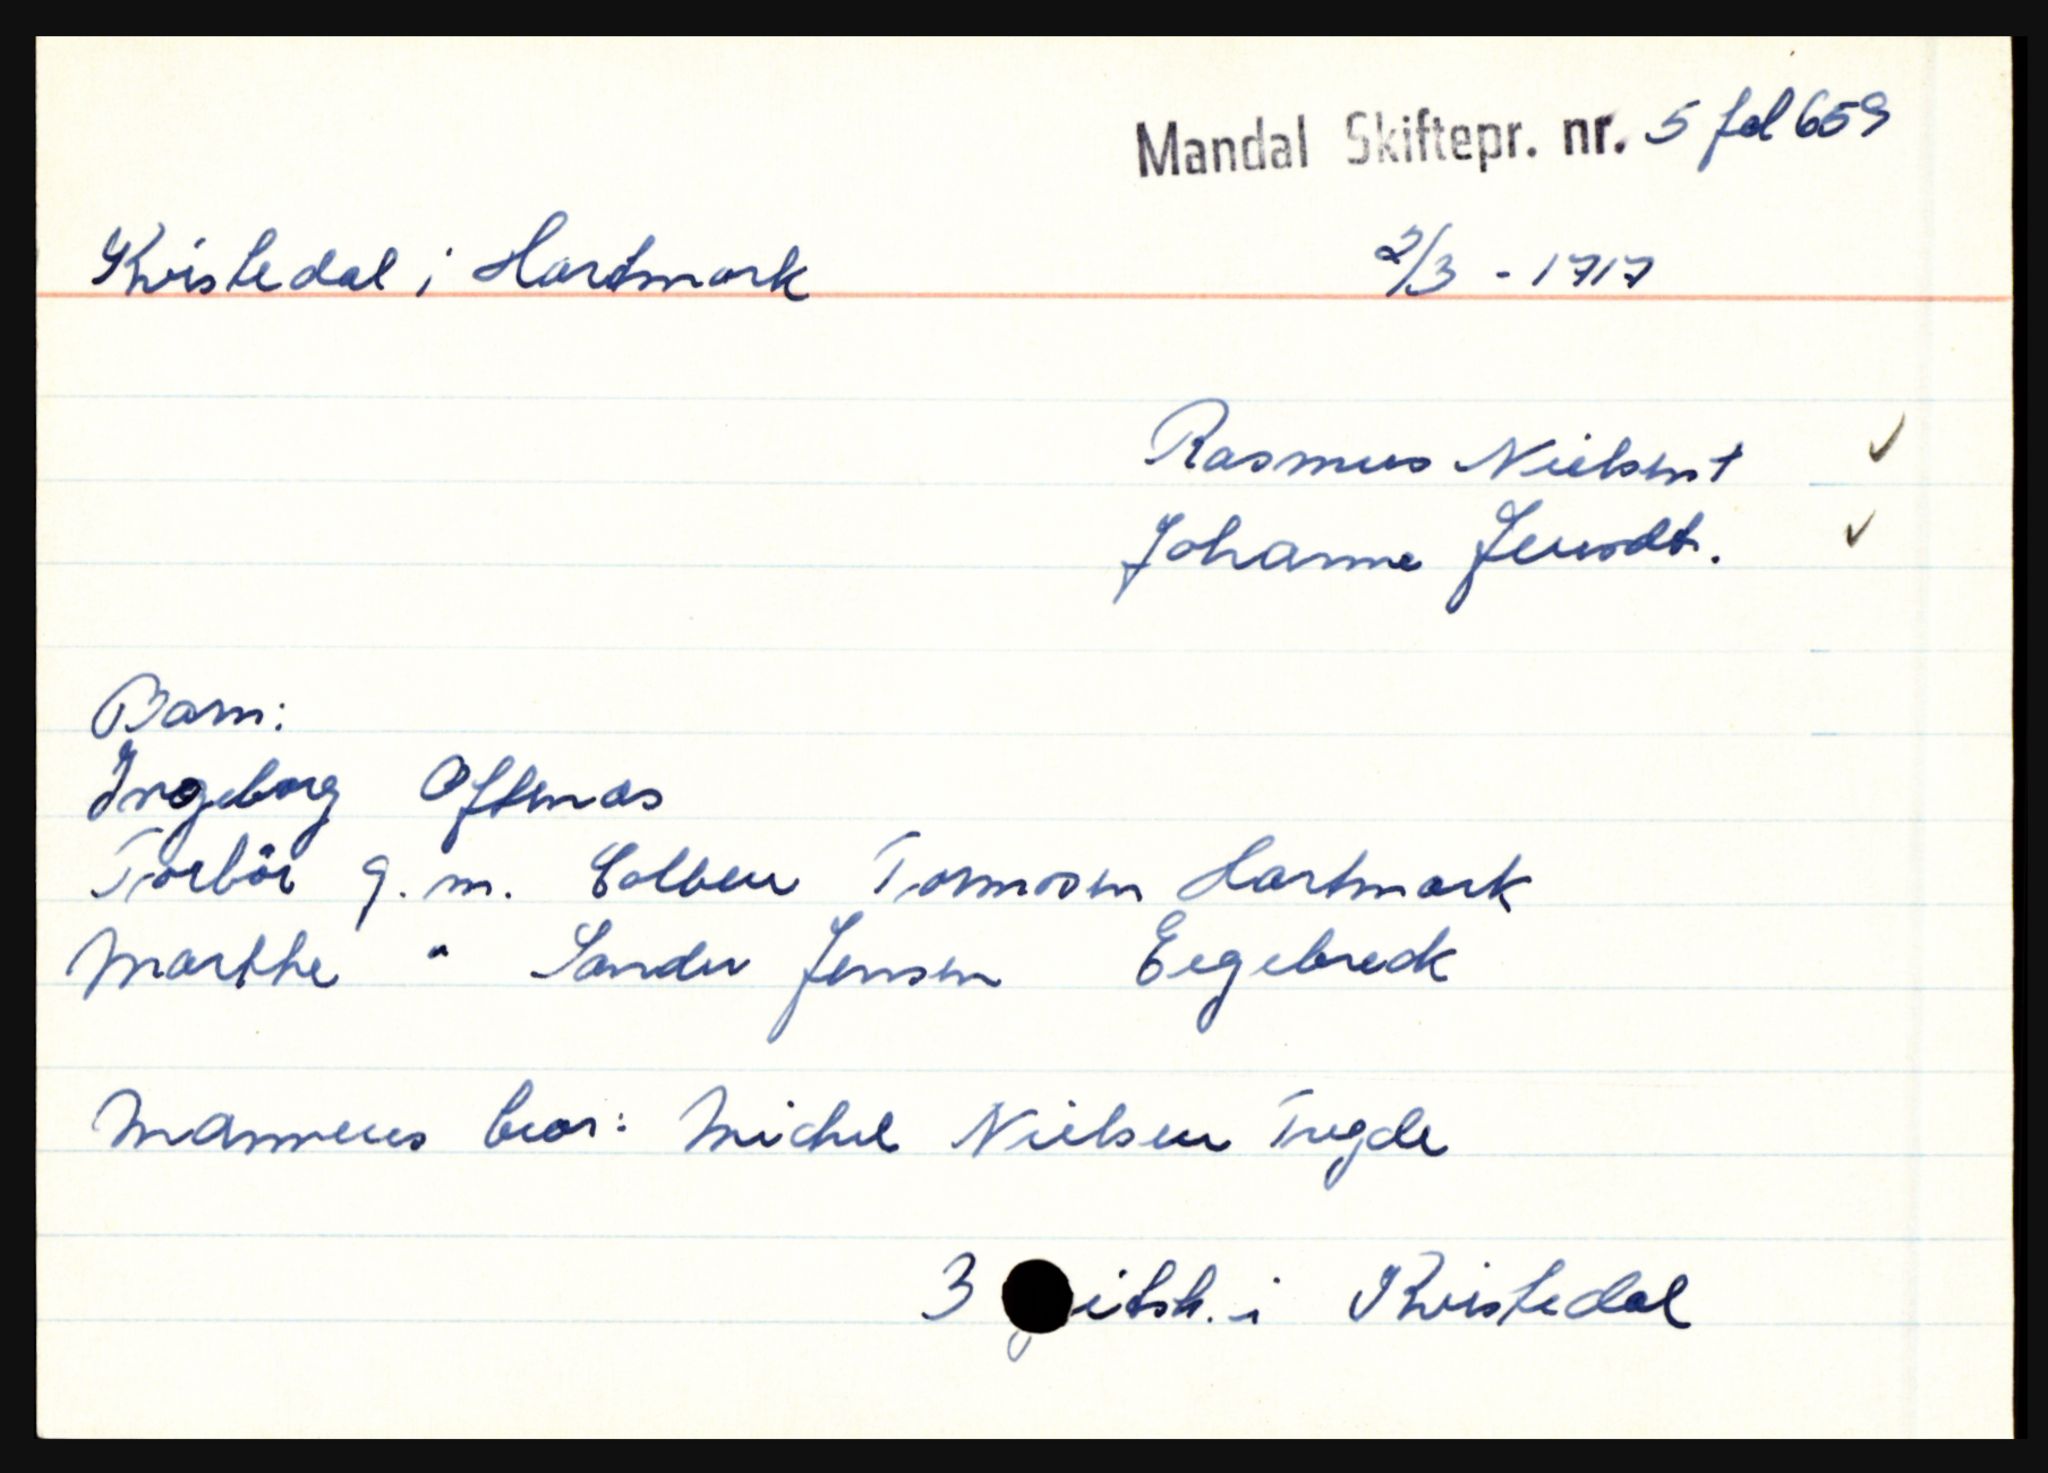 Mandal Skiftepr. nr. 5 fol 659
Kvistedal i Hartmark 2/3 - 1717
Rasmus Nielsen †
Johanne Jensdt.
Barn:
Ingeborg Oftenæs
Torbör g. m. Colben Tormosen Hartmark
Marthe " Sander Jensen Eegebreck
Mannens bror: Michel Nielsen Tregde
3 geitsk. i Kvistedal